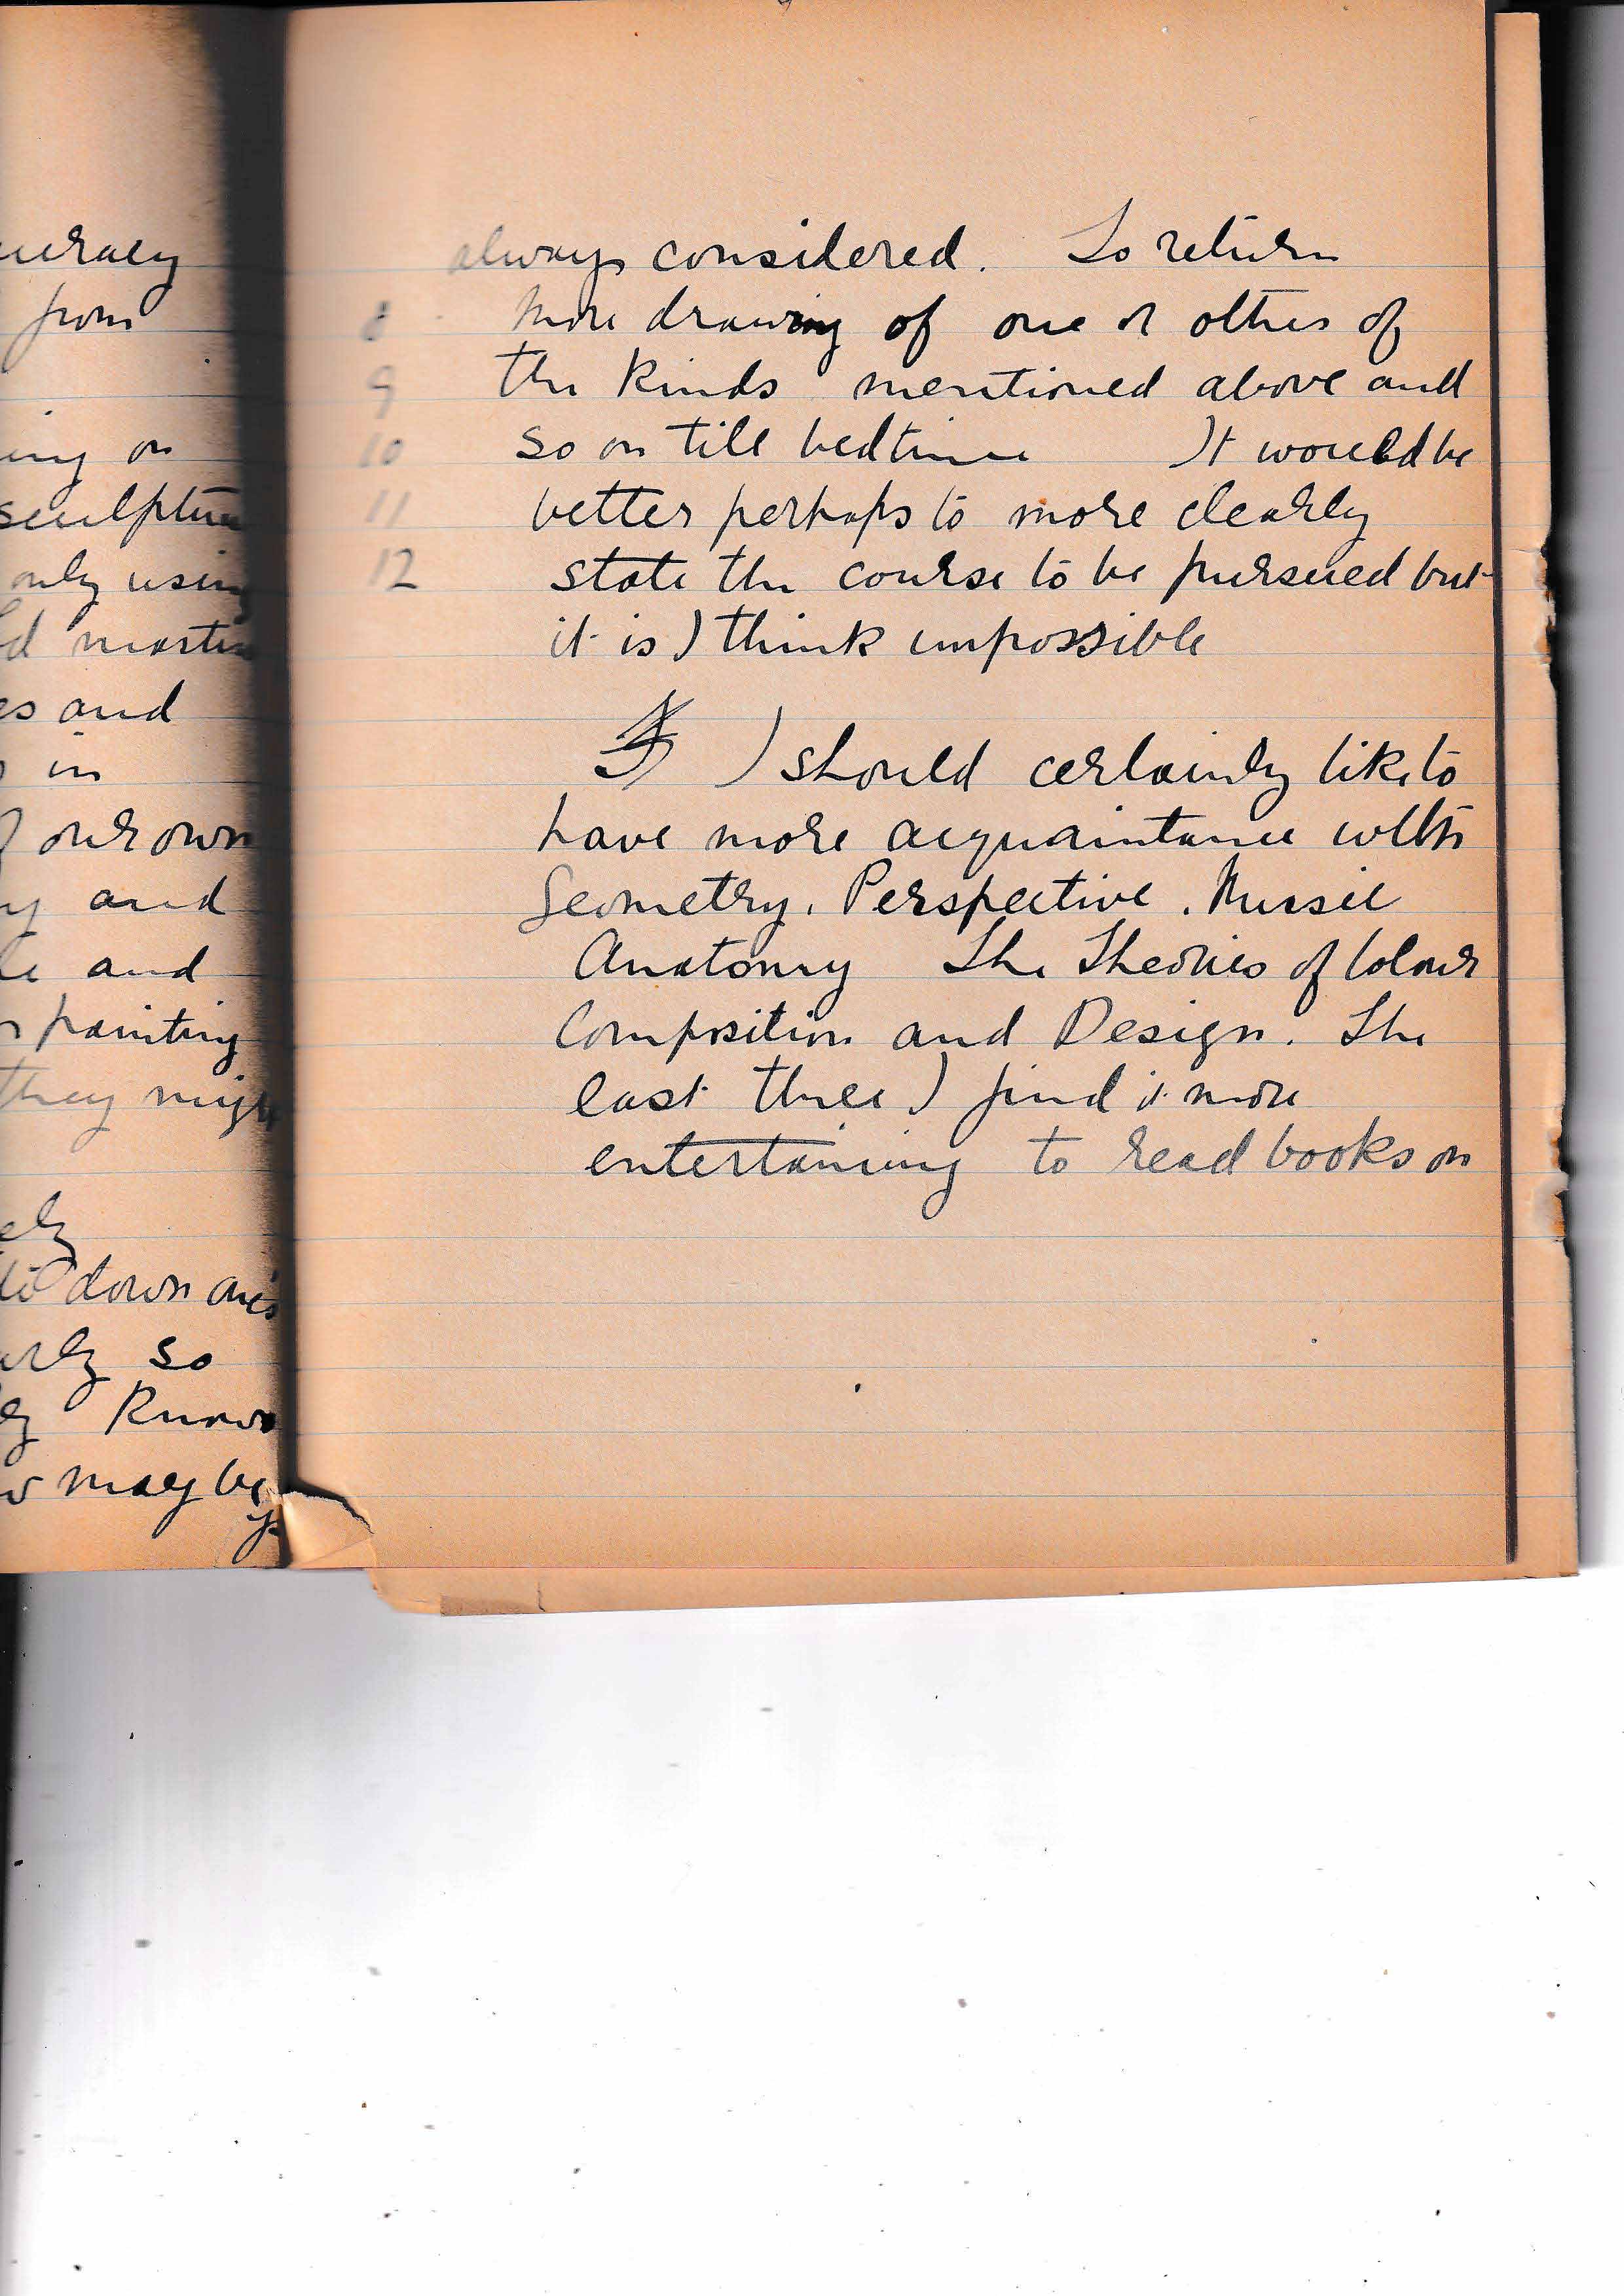 uracy
from
ing on
sculptur
only usin
d
es and
in
our own
y and
and
painting
they migh
ely
down
so
Know
may be
always considered. To return
8 More drawing of one or other of
9 the kinds mentioned above and
10 so on till bedtime It would be
11 better perhaps to more clearly
12 state the course to be pursued but
it is I think impossible
I should certainly like to
have more acquaintance with
Geometry. Perspective. Mussel
Anatomy The Theories of Colour
Composition and Design. The
last three I find it more
entertaining to read books on